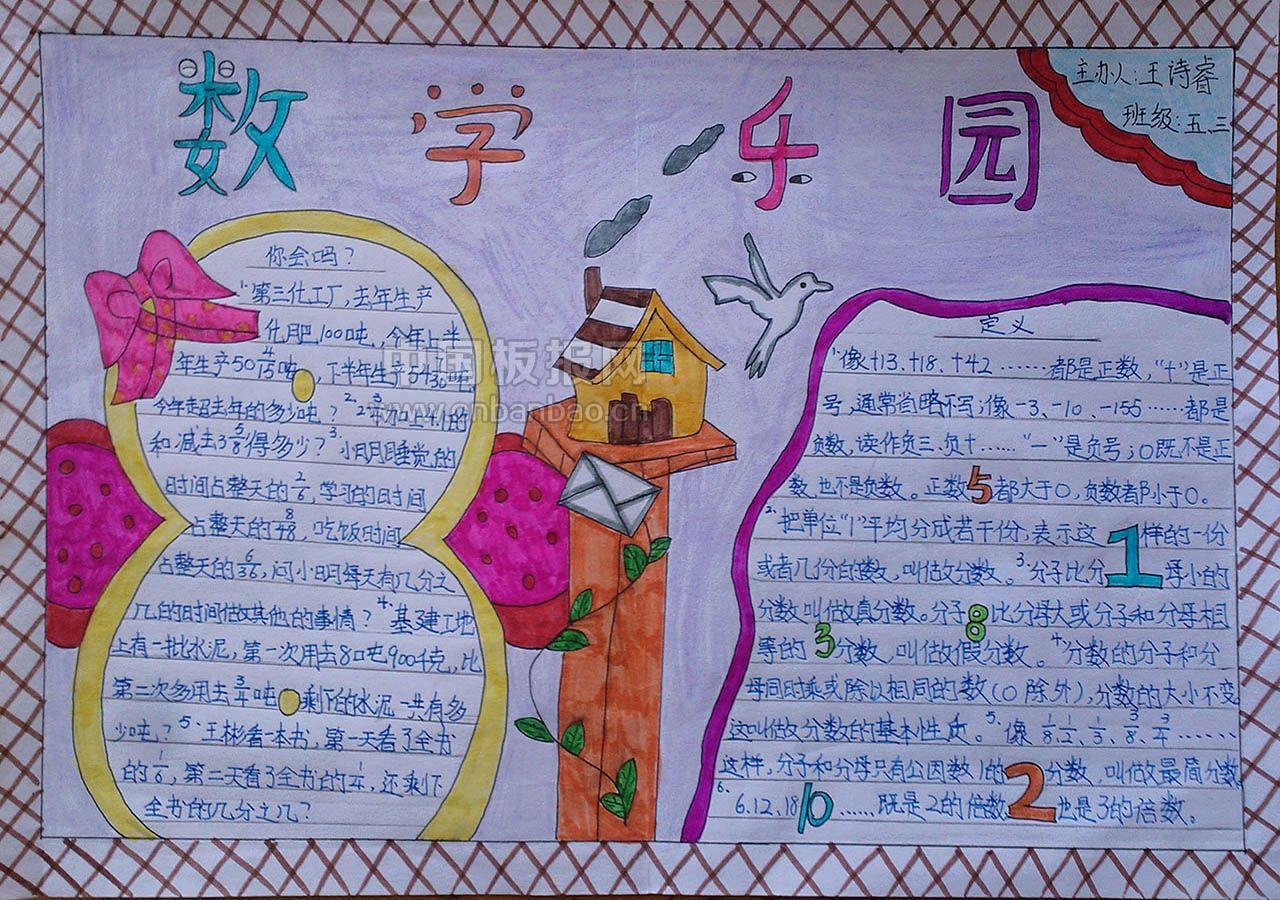 数学乐园
主办人:王诗睿
班级:五、三
你会吗?
1.第三化工厂,去年生产
化肥100吨,今年上半
年生产50 4/15吨,下半年生产54
今年超去年的多少吨?2.
和减去3 5/8得多少?3.小明睡觉的
时间占整天的2/6,学习的时间
占整天的8/48,吃饭时间
占整天的6/36,问小明每天有几分之
几的时间做其他的事情?4.基建工地
上有一批水泥,第一次用去8吨900千克,比
第二次多用去3/4吨 剩下的水泥一共有多
少吨?5.王彬看一本书,第一天看了全书
的1/6,第二天看了全书的1/4,还剩下
全书的几分之几?
定义
1.像+13、+18、+42……都是正数,“+”是正
号,通常省略不写;像-3、-10、-155……都是
负数,读作负三、负十……“一”是负号;0既不是正
数,也不是负数。正数5都大于0,负数都小于0。
2.把单位“1”平均分成若干份,表示这1样的一份
或者几份的数,叫做分数。3.分子比分母小的
分数叫做真分数。分子8比分母大或分子和分母相
等的3分数,叫做假分数。4.分数的分子和分
母同时乘或除以相同的数(0除外),分数的大小不变
这叫做分数的基本性质。5.像1/8、1/2、1/3、3/8、3/4……
这样,分子和分母只有公因数1的2分数,叫做最简分数
6.6.12.18 10……既是2的倍数 也是3的倍数。
中国板报网
www.cnbanbao.cn